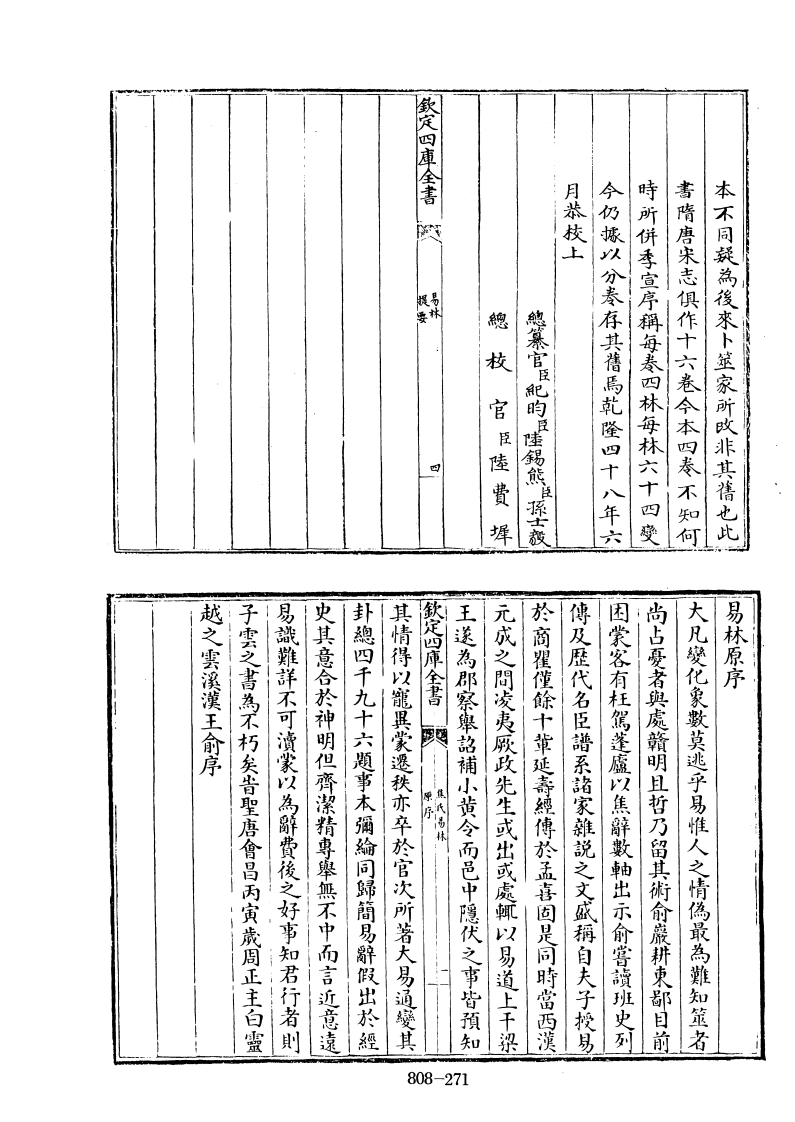 本不同疑為後來卜筮家所改非其舊也此
書隋唐宋志俱作十六卷今本四卷不知何
時所併季宣序稱每卷四林每林六十四變
今仍據以分卷存其舊焉乾隆四十八年六
月恭校上
總纂官臣紀昀臣陸錫熊臣孫士毅
總校官臣陸費墀
欽定四庫全書
易林
提要
四
易林原序
大凡變化象數莫逃乎易惟人之情偽最為難知筮者
尚占憂者與處贛明且哲乃留其術俞巖耕東鄙目前
困蒙客有枉駕蓬廬以焦辭數軸出示俞嘗讀班史列
傳及歷代名臣譜系諸家雜說之文盛稱自夫子授易
於商瞿僅餘十輩延壽經傳於孟喜固是同時當西漢
元成之間凌夷厥政先生或出或處輒以易道上干梁
王遂為郡察舉詔補小黄令而邑中隱伏之事皆預知
欽定四庫全書
焦氏易林
原序
二
其情得以寵異蒙遷秩亦卒於官次所著大易通變其
卦總四千九十六題事本彌綸同歸簡易辭假出於經
史其意合於神明但齊潔精專舉無不中而言近意遠
易識難詳不可瀆蒙以為辭費後之好事知君行者則
子雲之書為不朽矣旹聖唐會昌丙寅歲周正主白靈
越之雲溪漢王俞序
808-271